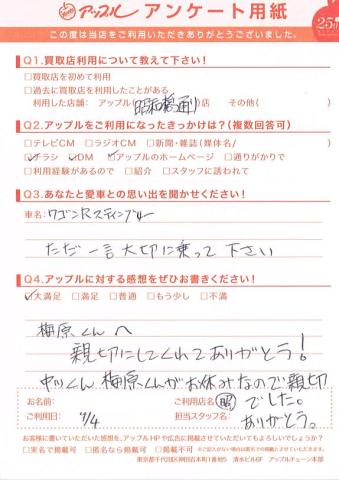 アップル アンケート用紙
この度は当店をご利用いただきありがとうございました。
Q1.買取店利用について教えて下さい!
□買取店を初めて利用
□過去に買取店を利用したことがある
利用した店舗: アップル(昭和橋通り)店 その他( )
Q2.アップルをご利用になったきっかけは?(複数回答可)
□テレビCM □ラジオCM □新聞・雑誌(媒体名/ )
☑チラシ ☑DM ☑アップルのホームページ □通りがかりで
□利用経験があるので □紹介 □スタッフに誘われて
Q3.あなたと愛車との思い出を聞かせください!
車名:ワゴンRスティングレー
ただ一言大切に乗って下さい
Q4.アップルに対する感想をぜひお書きください!
☑大満足 □満足 □普通 □もう少し □不満
梅原くんへ
親切にしてくれてありがとう!
中川くん 梅原くんがお休みなので親切
お名前: ご利用店名:(昭) でした。
ご利用日: 7/4 担当スタッフ名: ありがとう。
お客様に書いていただいた感想を、アップルHPや広告に掲載させていただいてもよろしいでしょうか?
□実名で掲載可 □匿名なら掲載可 □掲載不可
東京都千代田区神田岩本町1番地5 清水ビル6F アップルチェーン本部